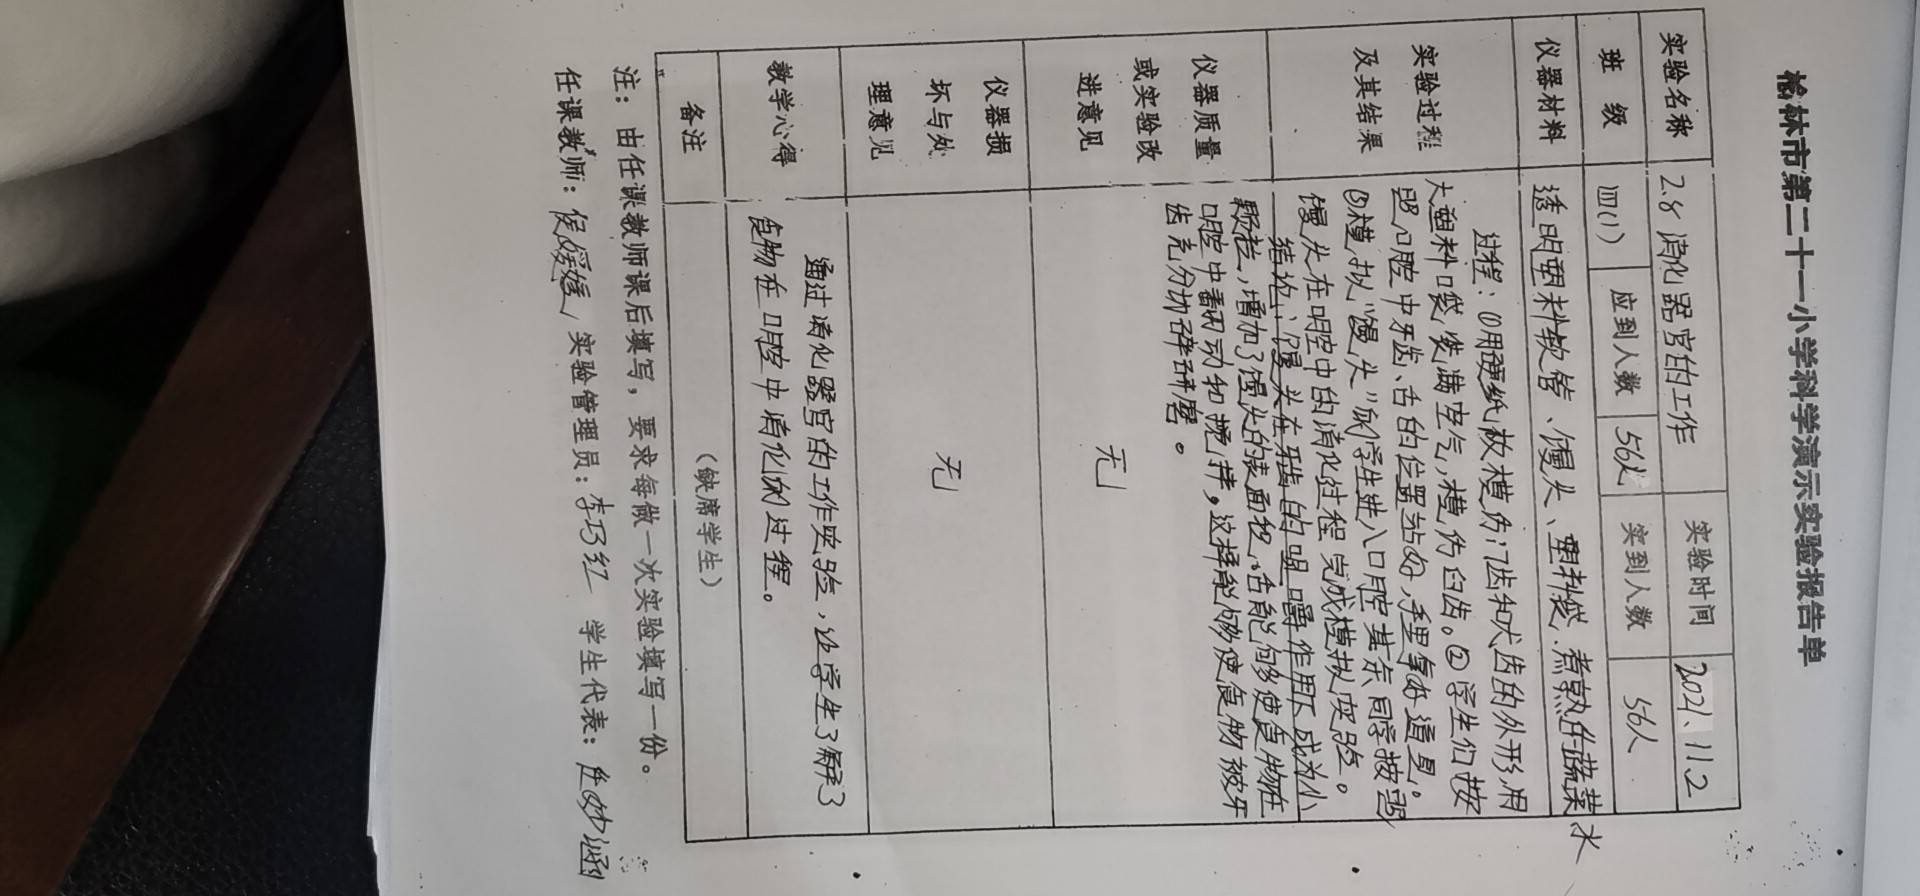 榆林市第二十一小学科学演示实验报告单
实验名称 2.8 消化器官的工作 实验时间 2021.11.2
班 级 四(1) 应到人数 56人 实到人数 56人
仪器材料 透明塑料软管、馒头、塑料袋、煮熟的蔬菜 水
实验过程
及其结果
过程：①用硬纸板模仿门齿和犬齿的外形,用
大塑料口袋装满空气,模仿臼齿。②学生们按
照口腔中牙齿、舌的位置站好,手里拿好道具。
③模拟"馒头"的学生进入口腔其余同学按照
馒头在口腔中的消化过程完成模拟实验。
结论：馒头在牙齿的咀嚼作用下成为小
颗粒,增加了馒头的表面积,舌能够使食物在
口腔中翻动和搅拌。这样能够使食物被牙
齿充分切碎研磨。
仪器质量
或实验改
进意见
无
仪器损
坏与处
理意见
无
教学心得
通过消化器官的工作实验,让学生了解了
食物在口腔中消化的过程。
备注 (缺席学生)
注：由任课教师课后填写，要求每做一次实验填写一份。
任课教师：侯媛媛 实验管理员：李巧红 学生代表：任妙涵